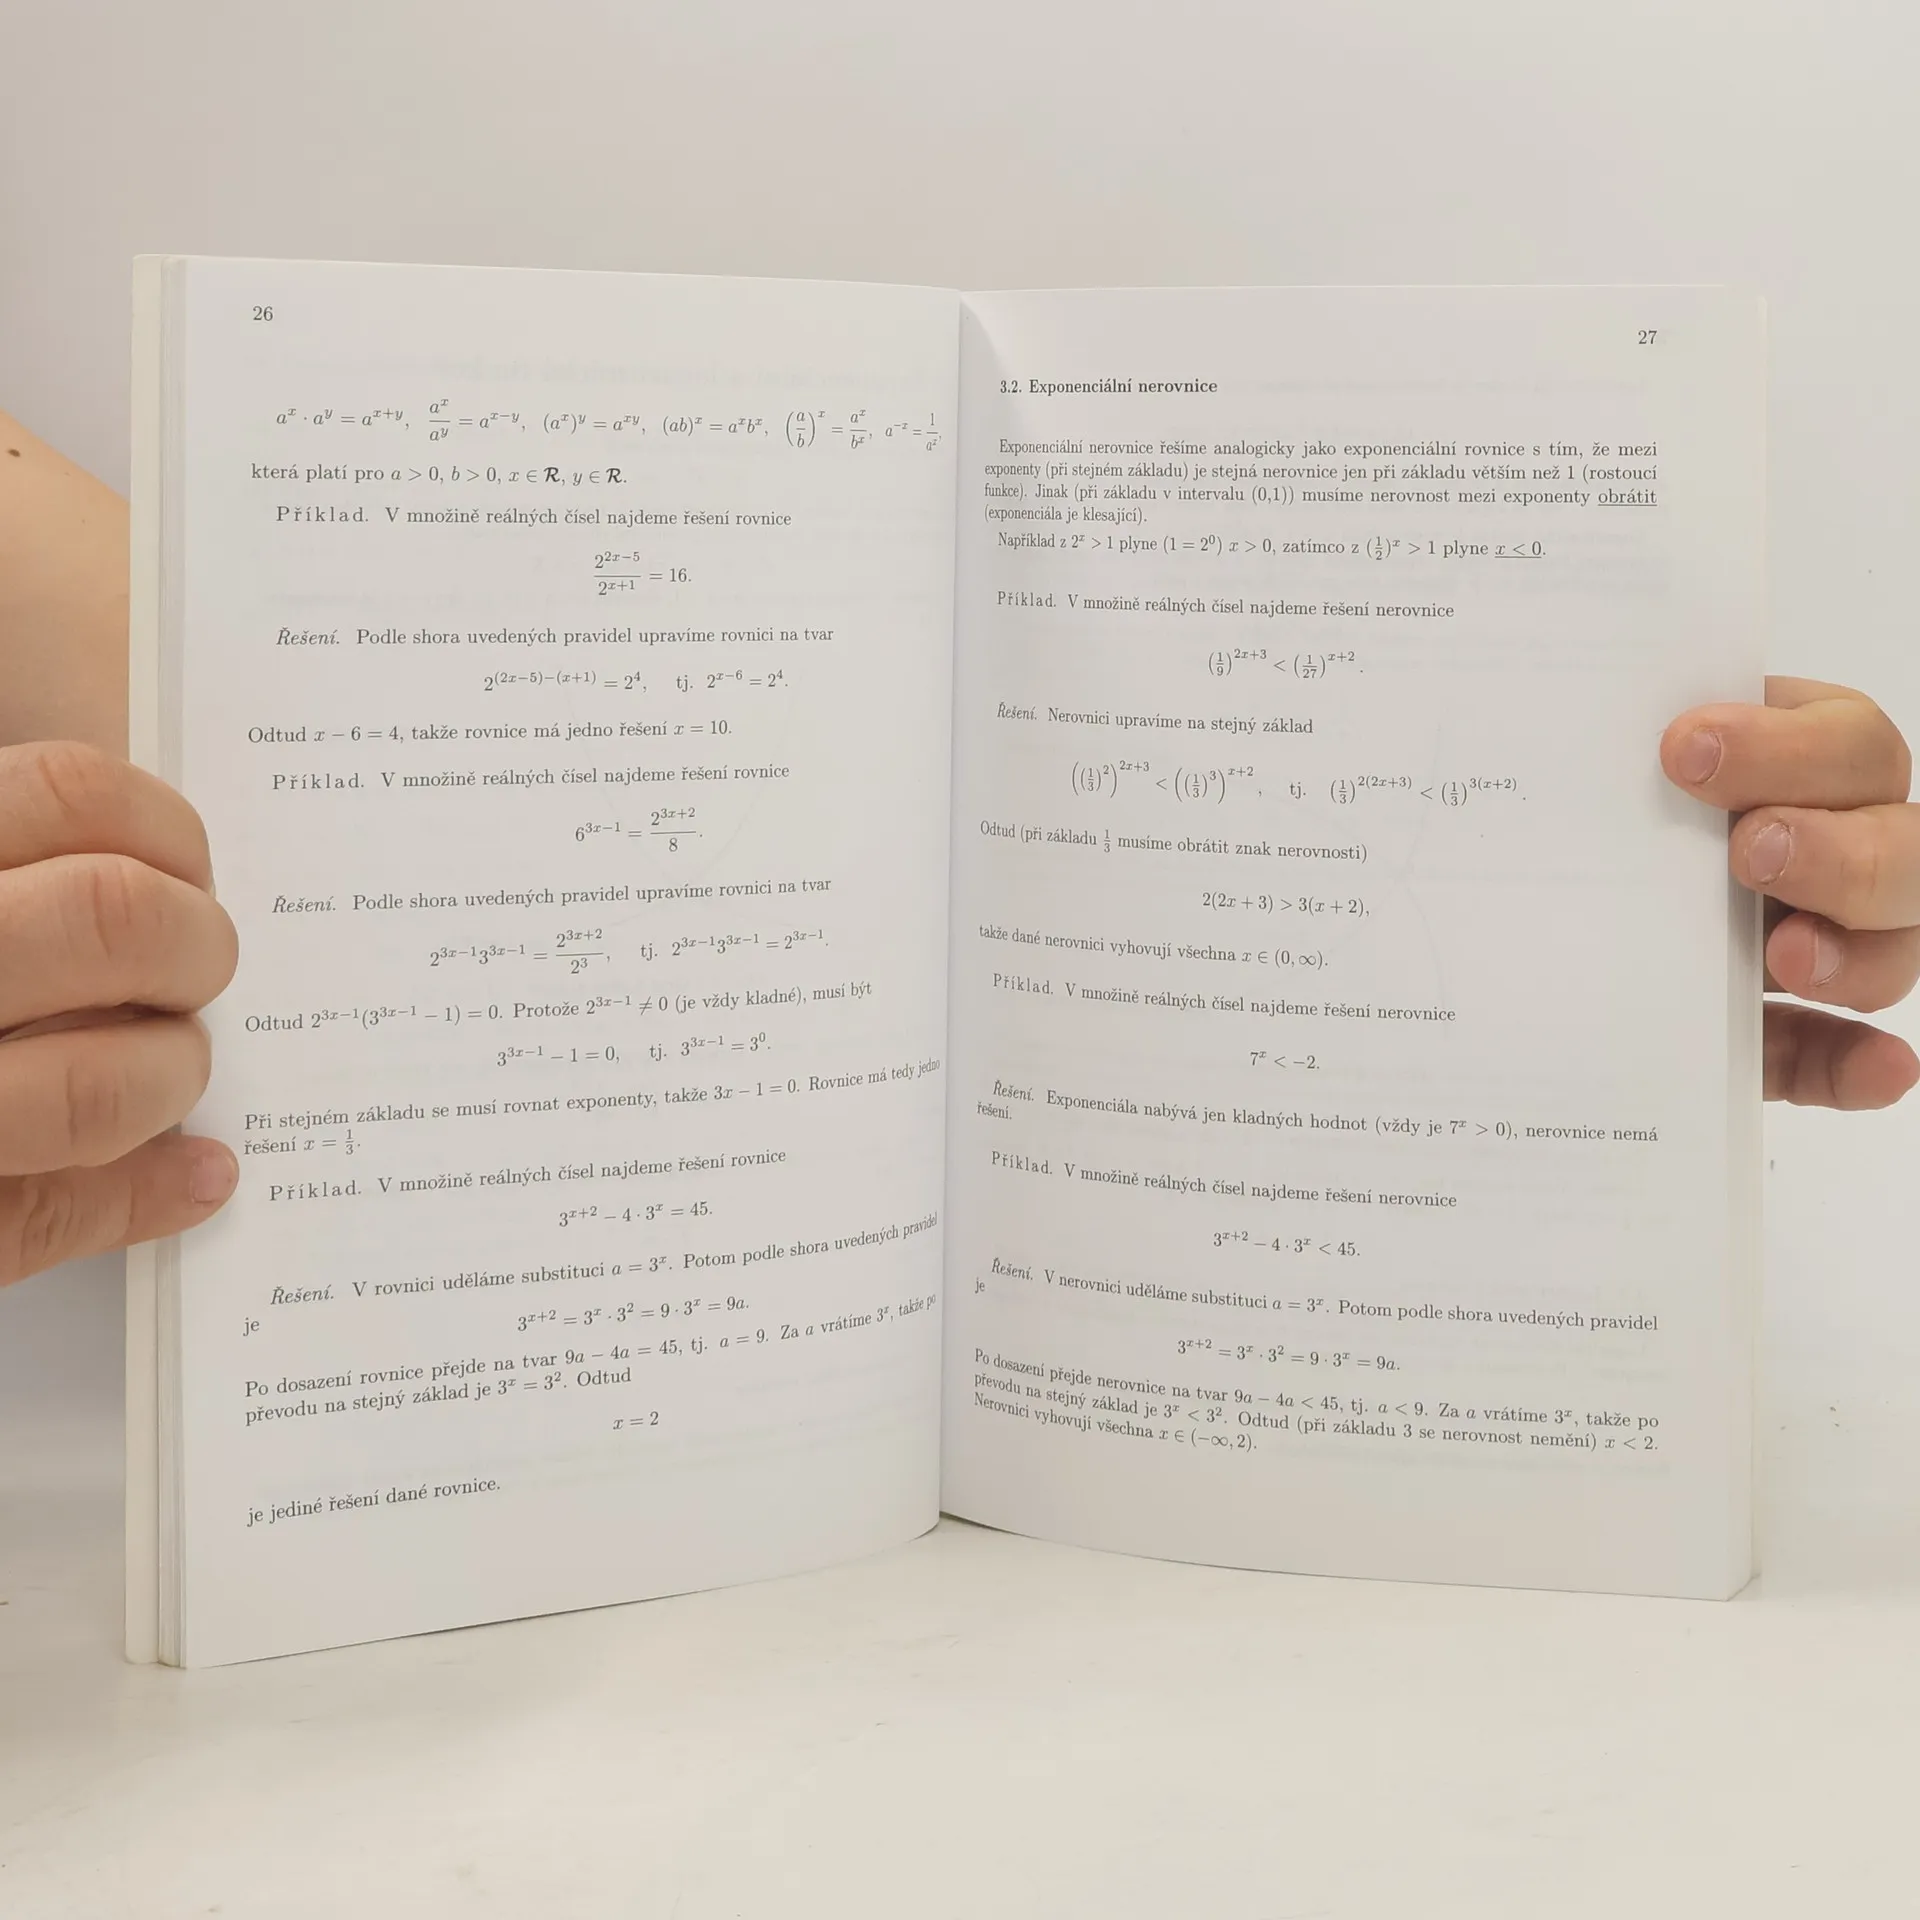 26
a^x · a^y = a^{x+y}, a^x/a^y = a^{x−y}, (a^x)^y = a^{xy}, (ab)^x = a^x b^x, (a/b)^x = a^x/b^x, a^{−x} = 1/a^x,
která platí pro a > 0, b > 0, x ∈ R, y ∈ R.
Příklad. V množině reálných čísel najdeme řešení rovnice
2^{2x−5}/2^{x+1} = 16.
Řešení. Podle shora uvedených pravidel upravíme rovnici na tvar
2^{(2x−5)−(x+1)} = 2^4, tj. 2^{x−6} = 2^4.
Odtud x − 6 = 4, takže rovnice má jedno řešení x = 10.
Příklad. V množině reálných čísel najdeme řešení rovnice
6^{3x−1} = 2^{3x+2}/8.
Řešení. Podle shora uvedených pravidel upravíme rovnici na tvar
2^{3x−1}3^{3x−1} = 2^{3x+2}/2^3, tj. 2^{3x−1}3^{3x−1} = 2^{3x−1}.
Odtud 2^{3x−1}(3^{3x−1} − 1) = 0. Protože 2^{3x−1} ≠ 0 (je vždy kladné), musí být
3^{3x−1} − 1 = 0, tj. 3^{3x−1} = 3^0.
Při stejném základu se musí rovnat exponenty, takže 3x − 1 = 0. Rovnice má tedy jedno
řešení x = 1/3.
Příklad. V množině reálných čísel najdeme řešení rovnice
3^{x+2} − 4 · 3^x = 45.
Řešení. V rovnici uděláme substituci a = 3^x. Potom podle shora uvedených pravidel
je
3^{x+2} = 3^x · 3^2 = 9 · 3^x = 9a.
Po dosazení rovnice přejde na tvar 9a − 4a = 45, tj. a = 9. Za a vrátíme 3^x, takže po
převodu na stejný základ je 3^x = 3^2. Odtud
x = 2
je jediné řešení dané rovnice.
27
3.2. Exponenciální nerovnice
Exponenciální nerovnice řešíme analogicky jako exponenciální rovnice s tím, že mezi
exponenty (při stejném základu) je stejná nerovnice jen při základu větším než 1 (rostoucí
funkce). Jinak (při základu v intervalu (0,1)) musíme nerovnost mezi exponenty obrátit
(exponenciála je klesající).
Například z 2^x > 1 plyne (1 = 2^0) x > 0, zatímco z (1/2)^x > 1 plyne x < 0.
Příklad. V množině reálných čísel najdeme řešení nerovnice
(1/9)^{2x+3} < (1/27)^{x+2}.
Řešení. Nerovnici upravíme na stejný základ
((1/3)^2)^{2x+3} < ((1/3)^3)^{x+2}, tj. (1/3)^{2(2x+3)} < (1/3)^{3(x+2)}.
Odtud (při základu 1/3 musíme obrátit znak nerovnosti)
2(2x + 3) > 3(x + 2),
takže dané nerovnici vyhovují všechna x ∈ (0, ∞).
Příklad. V množině reálných čísel najdeme řešení nerovnice
7^x < −2.
Řešení. Exponenciála nabývá jen kladných hodnot (vždy je 7^x > 0), nerovnice nemá
řešení.
Příklad. V množině reálných čísel najdeme řešení nerovnice
3^{x+2} − 4 · 3^x < 45.
Řešení. V nerovnici uděláme substituci a = 3^x. Potom podle shora uvedených pravidel
je
3^{x+2} = 3^x · 3^2 = 9 · 3^x = 9a.
Po dosazení přejde nerovnice na tvar 9a − 4a < 45, tj. a < 9. Za a vrátíme 3^x, takže po
převodu na stejný základ je 3^x < 3^2. Odtud (při základu 3 se nerovnost nemění) x < 2.
Nerovnici vyhovují všechna x ∈ (−∞, 2).